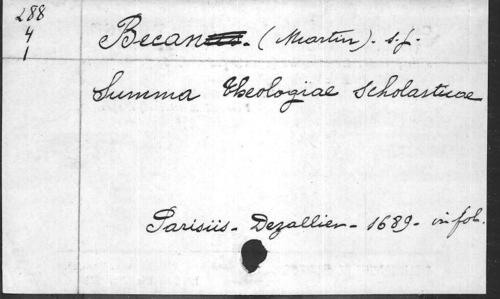 288
4
1
Becan. (Martin). s.j.
Summa theologiae scholasticae
Parisiis - Dezallier - 1689 - in fol.